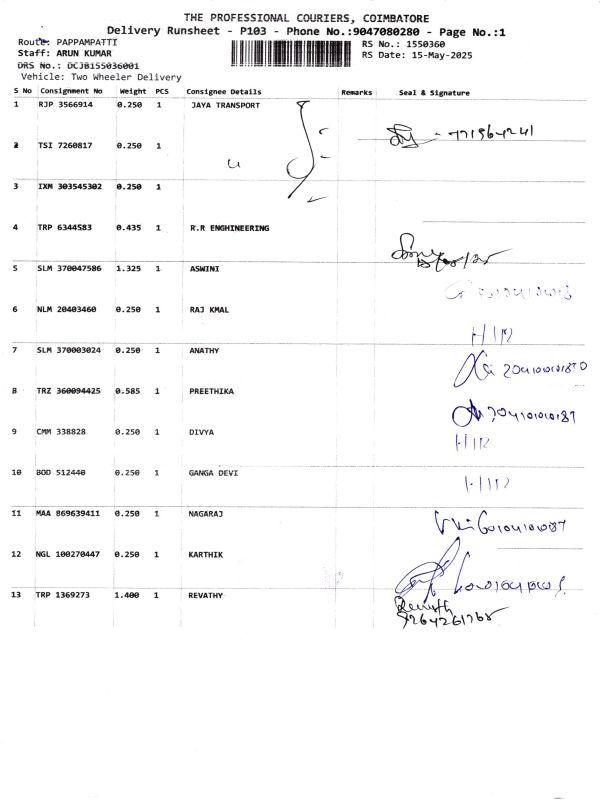 THE PROFESSIONAL COURIERS, COIMBATORE
Delivery Runsheet - P103 - Phone No.:9047080280 - Page No.:1
Route: PAPPAMPATTI
RS No.: 1550360
Staff: ARUN KUMAR
RS Date: 15-May-2025
DRS No.: DCJB155036001
Vehicle: Two Wheeler Delivery
S No Consignment No Weight PCS Consignee Details Remarks Seal & Signature
1 RJP 3566914 0.250 1 JAYA TRANSPORT
2 TSI 7260817 0.250 1
3 IXM 303545302 0.250 1
4 TRP 6344583 0.435 1 R.R ENGHINEERING
5 SLM 370047586 1.325 1 ASWINI
6 NLM 20403460 0.250 1 RAJ KMAL
7 SLM 370003024 0.250 1 ANATHY
8 TRZ 360094425 0.585 1 PREETHIKA
9 CMM 338828 0.250 1 DIVYA
10 BOD 512440 0.250 1 GANGA DEVI
11 MAA 869639411 0.250 1 NAGARAJ
12 NGL 100270447 0.250 1 KARTHIK
13 TRP 1369273 1.400 1 REVATHY